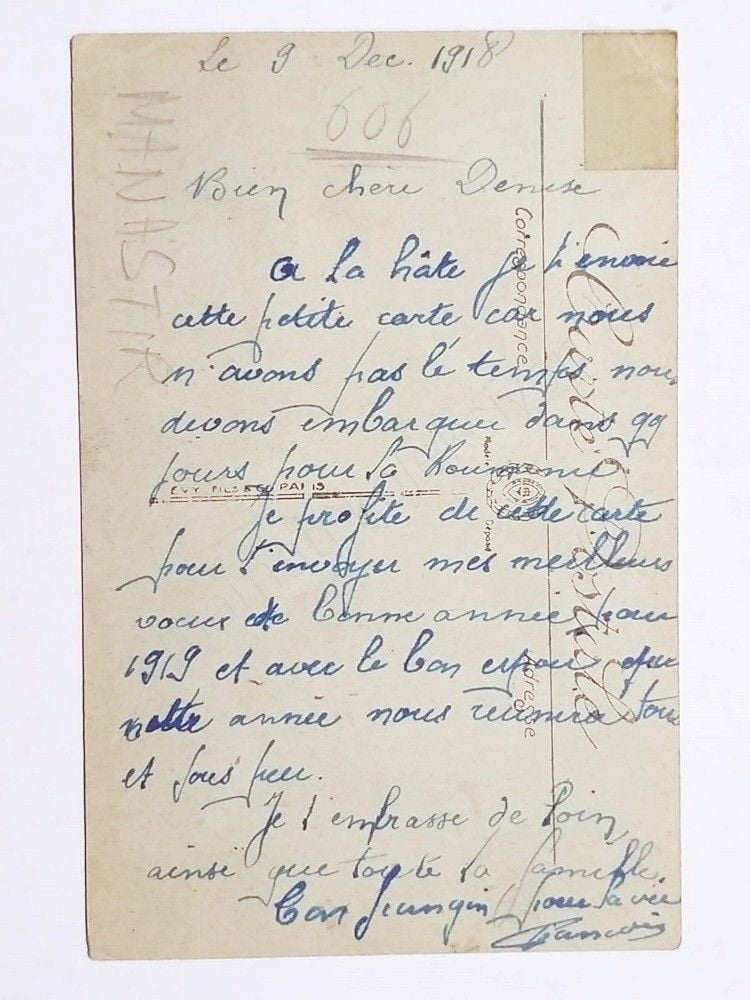 Le 9 Dec. 1918
606
MANASTIR
Bien chère Denise
a la hâte je t'envoie
cette petite carte car nous
n'avons pas le temps nous
devons embarquer dans qq
jours pour la Roumanie.
Je profite de cette carte
pour t'envoyer mes meilleurs
voeux de bonne année pour
1919 et avec le bon espoir que
cette année nous réunira tous
et sous peu.
Je t'embrasse de loin
ainsi que toute la famille.
Ton pour la vie
François
Carte Postale
Correspondance
Adresse
Modèle Déposé
FILS & Cie PARIS